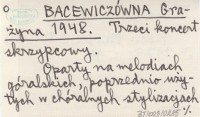 BACEWICZÓWNA Gra-
żyna 1948. Trzeci koncert
skrzypcowy.
Oparty na melodiach
góralskich, poprzednio uży-
tych w chóralnych stylizacjach